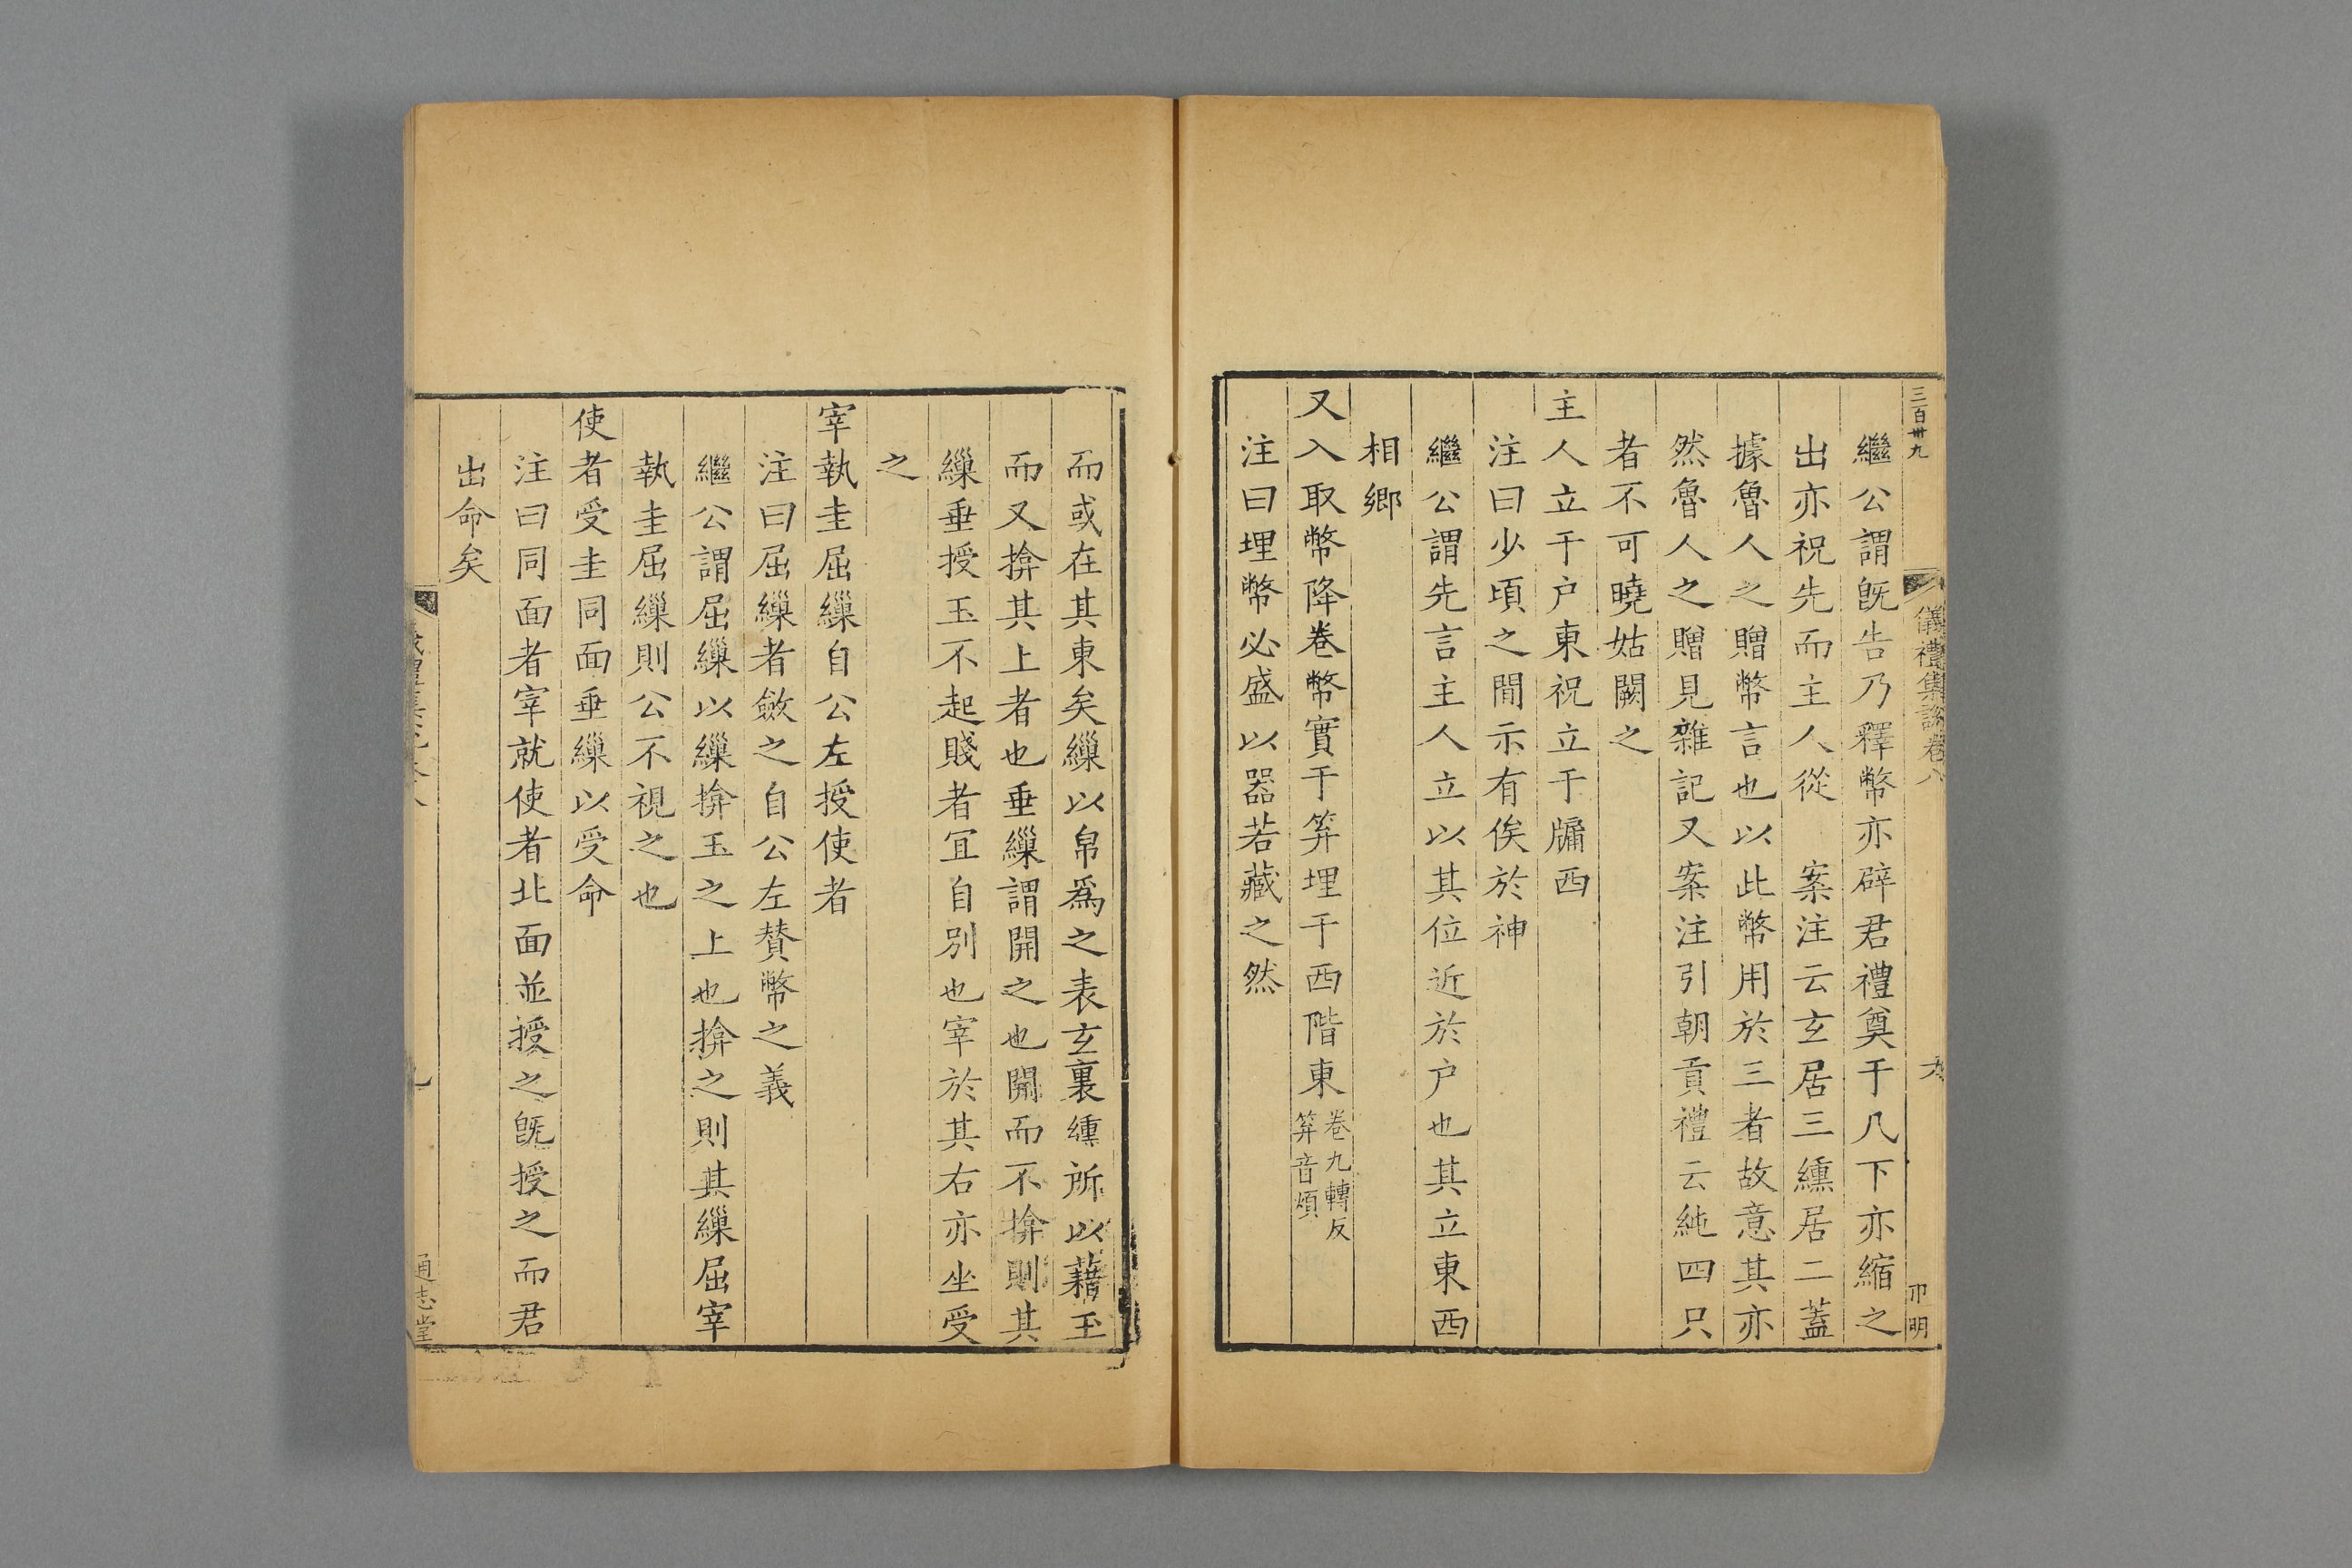 三百卅九
儀禮集說卷八
卩明
繼公謂旣告乃釋幣亦辟君禮奠于几下亦縮之
出亦祝先而主人從　案注云玄居三纁居二蓋
據魯人之贈幣言也以此幣用於三者故意其亦
然魯人之贈見雜記又案注引朝貢禮云純四只
者不可曉姑闕之
主人立于户東祝立于牖西
注曰少頃之間示有俟於神
繼公謂先言主人立以其位近於户也其立東西
相鄉
又入取幣降卷幣實于筭埋于西階東卷九轉反筭音煩
注曰埋幣必盛以器若藏之然
而或在其東矣繅以帛爲之表玄裏纁所以藉玉
而又揜其上者也垂繅謂開之也開而不揜則其
繅垂授玉不起賤者宜自別也宰於其右亦坐受
之
宰執圭屈繅自公左授使者
注曰屈繅者斂之自公左贊幣之義
繼公謂屈繅以繅揜玉之上也揜之則其繅屈宰
執圭屈繅則公不視之也
使者受圭同面垂繅以受命
注曰同面者宰就使者北面並授之旣授之而君
出命矣
通志堂